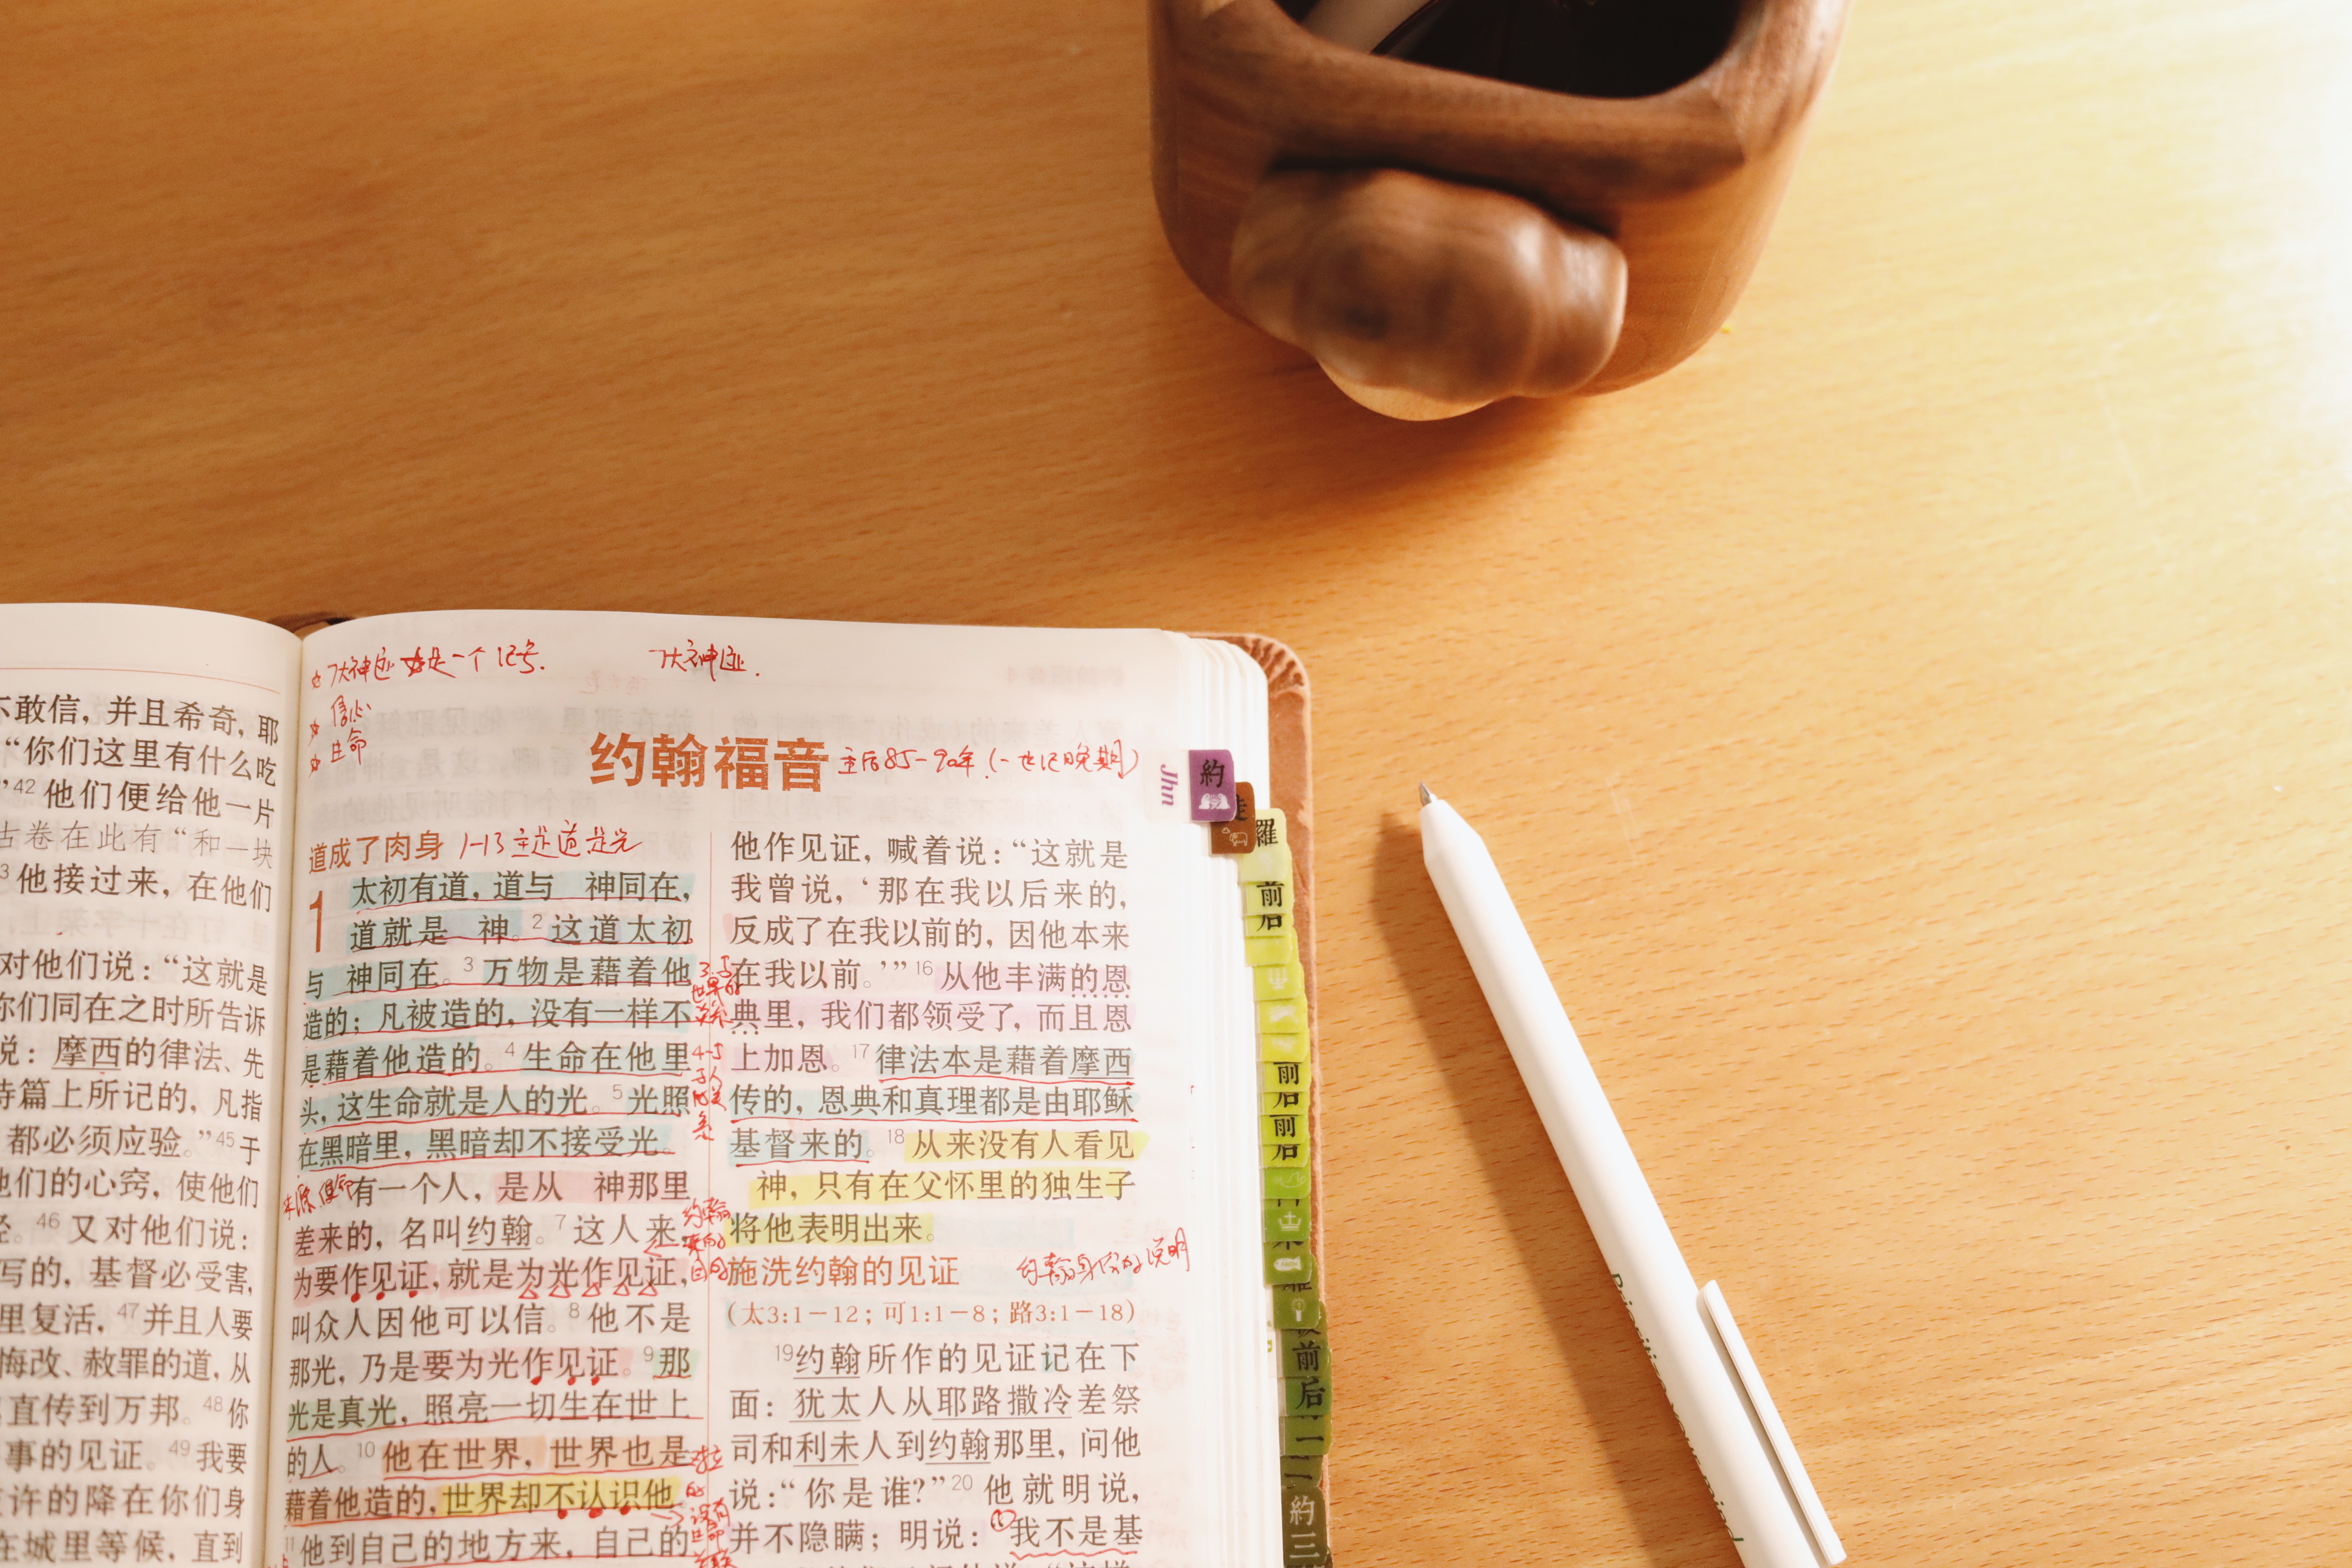 不敢信，并且希奇，耶
“你们这里有什么吃
”42 他们便给他一片
古卷在此有“和一块
3 他接过来，在他们
对他们说：“这就是
你们同在之时所告诉
说：摩西的律法、先
诗篇上所记的，凡指
都必须应验。”45 于
他们的心窍，使他们
经。46 又对他们说：
写的，基督必受害，
里复活，47 并且人要
悔改、赦罪的道，从
直传到万邦。48 你
事的见证。49 我要
许的降在你们身
在城里等候，直到
七大神迹 是一个记号.
七大神迹.
信心
生命
约翰福音
主后85-90年.(一世纪晚期)
Jhn
道成了肉身
1-13 主是道是光
1 太初有道，道与 神同在，
道就是 神。2 这道太初
与 神同在。3 万物是藉着他
造的；凡被造的，没有一样不
是藉着他造的。4 生命在他里
头，这生命就是人的光。5 光照
在黑暗里，黑暗却不接受光。
有一个人，是从 神那里
差来的，名叫约翰。7 这人来，
为要作见证，就是为光作见证，
叫众人因他可以信。8 他不是
那光，乃是要为光作见证。9 那
光是真光，照亮一切生在世上
的人。10 他在世界，世界也是
藉着他造的，世界却不认识他。
11 他到自己的地方来，自己的
来源 使命
他作见证，喊着说：“这就是
我曾说，‘那在我以后来的，
反成了在我以前的，因他本来
在我以前。’”16 从他丰满的恩
典里，我们都领受了，而且恩
上加恩。17 律法本是藉着摩西
传的，恩典和真理都是由耶稣
基督来的。18 从来没有人看见
神，只有在父怀里的独生子
将他表明出来。
施洗约翰的见证
约翰身份的说明
（太3:1－12；可1:1－8；路3:1－18）
19 约翰所作的见证记在下
面：犹太人从耶路撒冷差祭
司和利未人到约翰那里，问他
说：“你是谁？”20 他就明说，
并不隐瞒；明说：①我不是基
約
徒
羅
前
后
前
后
前
后
前
后
二
約
三